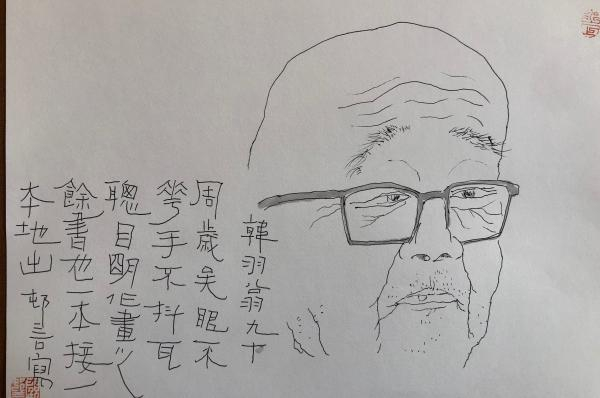 韓羽翁九十
周歲矣眼不
花手不抖耳
聰目明作畫之
餘書也一本接一
本地出邨言寫